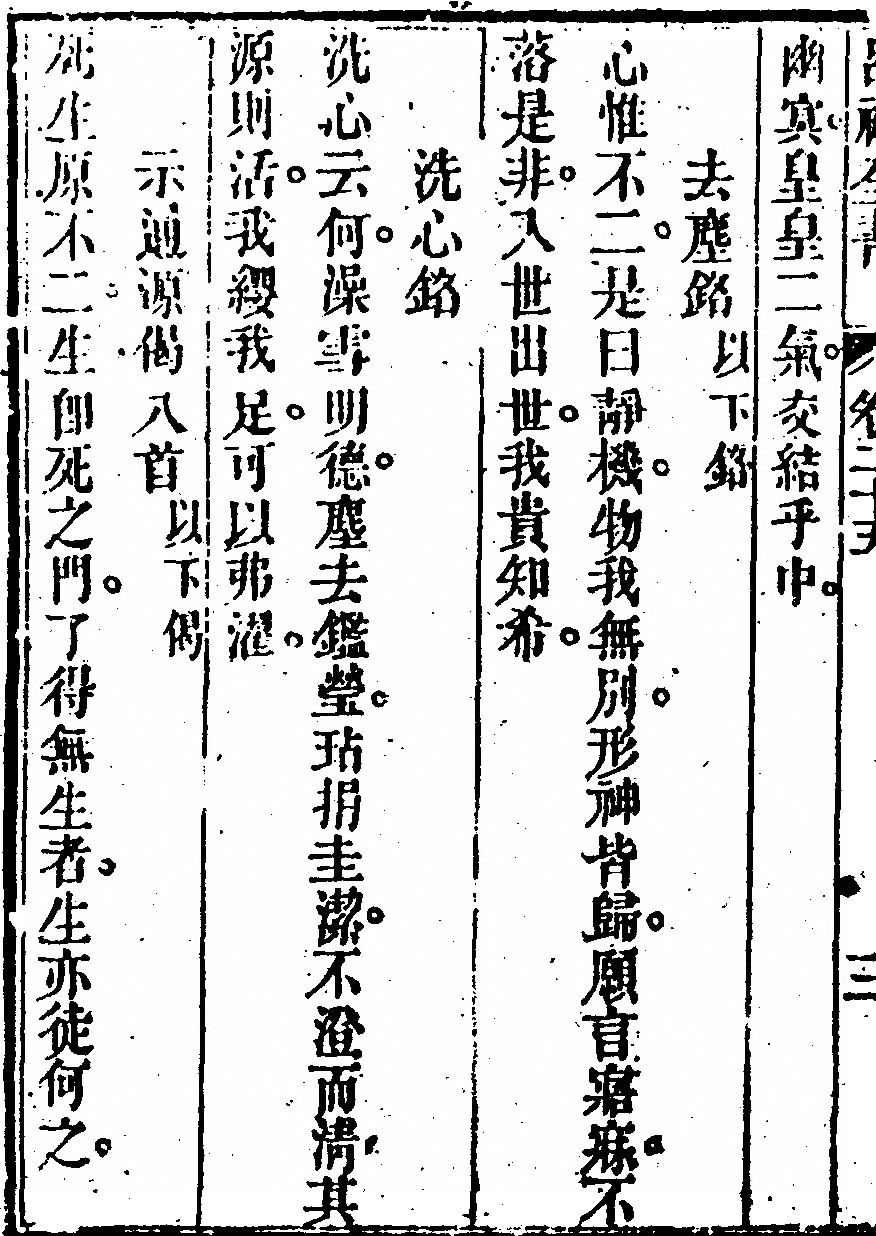 呂祖全書 卷二十五 三
幽冥皇皇二氣交結乎中
去塵銘 以下銘
心惟不二是曰靜機物我無別形神皆歸願言寤寐不
落是非入世出世我貴知希
洗心銘
洗心云何澡雪明德塵去鑑瑩玷捐圭潔不澄而清其
源則活我纓我足可以弗濯
示通源偈八首 以下偈
死生原不二生卽死之門了得無生者生亦徒何之